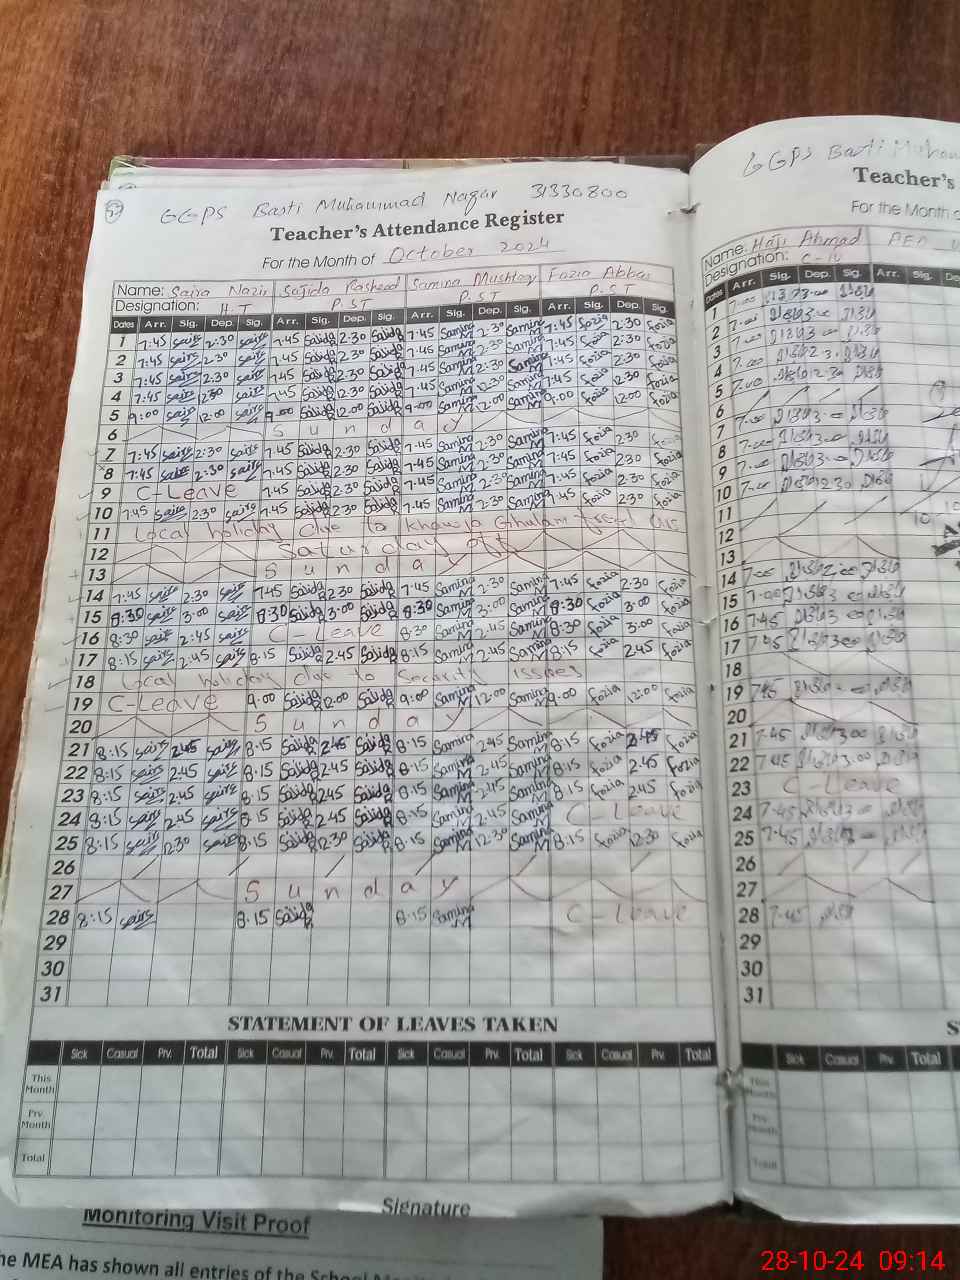 GGPS Basti Muhammad Nagar 31330800
Teacher's Attendance Register
For the Month of October 2024
Name: Saira Nazir Sajida Rasheed Samina Mushtaq Fozia Abbas
Designation: H.T P.S.T P.S.T P.S.T
Dates Arr. Sig. Dep. Sig. Arr. Sig. Dep. Sig. Arr. Sig. Dep. Sig. Arr. Sig. Dep. Sig.
1 7:45 saira 2:30 saira 7:45 Sajida R 2:30 Sajida R 7:45 Samina M 2:30 Samina M 7:45 fozia 2:30 fozia
2 7:45 saira 2:30 saira 7:45 Sajida R 2:30 Sajida R 7:45 Samina M 2:30 Samina M 7:45 fozia 2:30 fozia
3 7:45 saira 2:30 saira 7:45 Sajida R 2:30 Sajida R 7:45 Samina M 2:30 Samina M 7:45 fozia 2:30 fozia
4 7:45 saira 12:30 saira 7:45 Sajida R 12:30 Sajida R 7:45 Samina M 12:30 Samina M 7:45 fozia 12:30 fozia
5 9:00 saira 12:00 saira 9:00 Sajida R 12:00 Sajida R 9:00 Samina M 12:00 Samina M 9:00 fozia 12:00 fozia
6 Sunday
7 7:45 saira 2:30 saira 7:45 Sajida R 2:30 Sajida R 7:45 Samina M 2:30 Samina M 7:45 fozia 2:30 fozia
8 7:45 saira 2:30 saira 7:45 Sajida R 2:30 Sajida R 7:45 Samina M 2:30 Samina M 7:45 fozia 2:30 fozia
9 C-Leave 7:45 Sajida R 2:30 Sajida R 7:45 Samina M 2:30 Samina M 7:45 fozia 2:30 fozia
10 7:45 saira 2:30 saira 7:45 Sajida R 2:30 Sajida R 7:45 Samina M 2:30 Samina M 7:45 fozia 2:30 fozia
11 Local holiday due to Khawja Ghulam
12 Saturday off
13 Sunday
14 7:45 saira 2:30 saira 7:45 Sajida R 2:30 Sajida R 7:45 Samina M 2:30 Samina M 7:45 fozia 2:30 fozia
15 8:30 saira 3:00 saira 8:30 Sajida R 3:00 Sajida R 8:30 Samina M 3:00 Samina M 8:30 fozia 3:00 fozia
16 8:30 saira 2:45 saira C-Leave 8:30 Samina M 2:45 Samina M 8:30 fozia 3:00 fozia
17 8:15 saira 2:45 saira 8:15 Sajida R 2:45 Sajida R 8:15 Samina M 2:45 Samina M 8:15 fozia 2:45 fozia
18 Local holiday due to Security issues
19 C-Leave 9:00 Sajida R 12:00 Sajida R 9:00 Samina M 12:00 Samina M 9:00 fozia 12:00 fozia
20 Sunday
21 8:15 saira 2:45 saira 8:15 Sajida R 2:45 Sajida R 8:15 Samina M 2:45 Samina M 8:15 fozia 2:45 fozia
22 8:15 saira 2:45 saira 8:15 Sajida R 2:45 Sajida R 8:15 Samina M 2:45 Samina M 8:15 fozia 2:45 fozia
23 8:15 saira 2:45 saira 8:15 Sajida R 2:45 Sajida R 8:15 Samina M 2:45 Samina M 8:15 fozia 2:45 fozia
24 8:15 saira 2:45 saira 8:15 Sajida R 2:45 Sajida R 8:15 Samina M 2:45 Samina M C-Leave
25 8:15 saira 12:30 saira 8:15 Sajida R 12:30 Sajida R 8:15 Samina M 12:30 Samina M 8:15 fozia 12:30 fozia
26
27 Sunday
28 8:15 saira 8:15 Sajida R 8:15 Samina M C-Leave
29
30
31
STATEMENT OF LEAVES TAKEN
Sick Casual Prv. Total Sick Casual Prv. Total Sick Casual Prv. Total Sick Casual Prv. Total
This Month
Prv. Month
Total
Signature
GGPS Basti
Teacher's
For the Month
Name: Haji Ahmad
Designation: C-IV
Dates Arr. Sig. Dep. Sig. Arr. Sig.
1 7:00
2 7:00
3 7:00
4 7:00
5 7:00
6
7 7:00
8 7:00
9 7:00
10 7:00
11
12
13
14 7:00
15 7:00
16 7:45
17 7:45
18
19 7:45
20
21 7:45
22 7:45
23 C-Leave
24 7:45
25 7:45
26
27
28 7:45
29
30
31
Sick Casual Prv. Total Sick
This Month
Prv. Month
Total
Monitoring Visit Proof
he MEA has shown all entries of the School
28-10-24 09:14